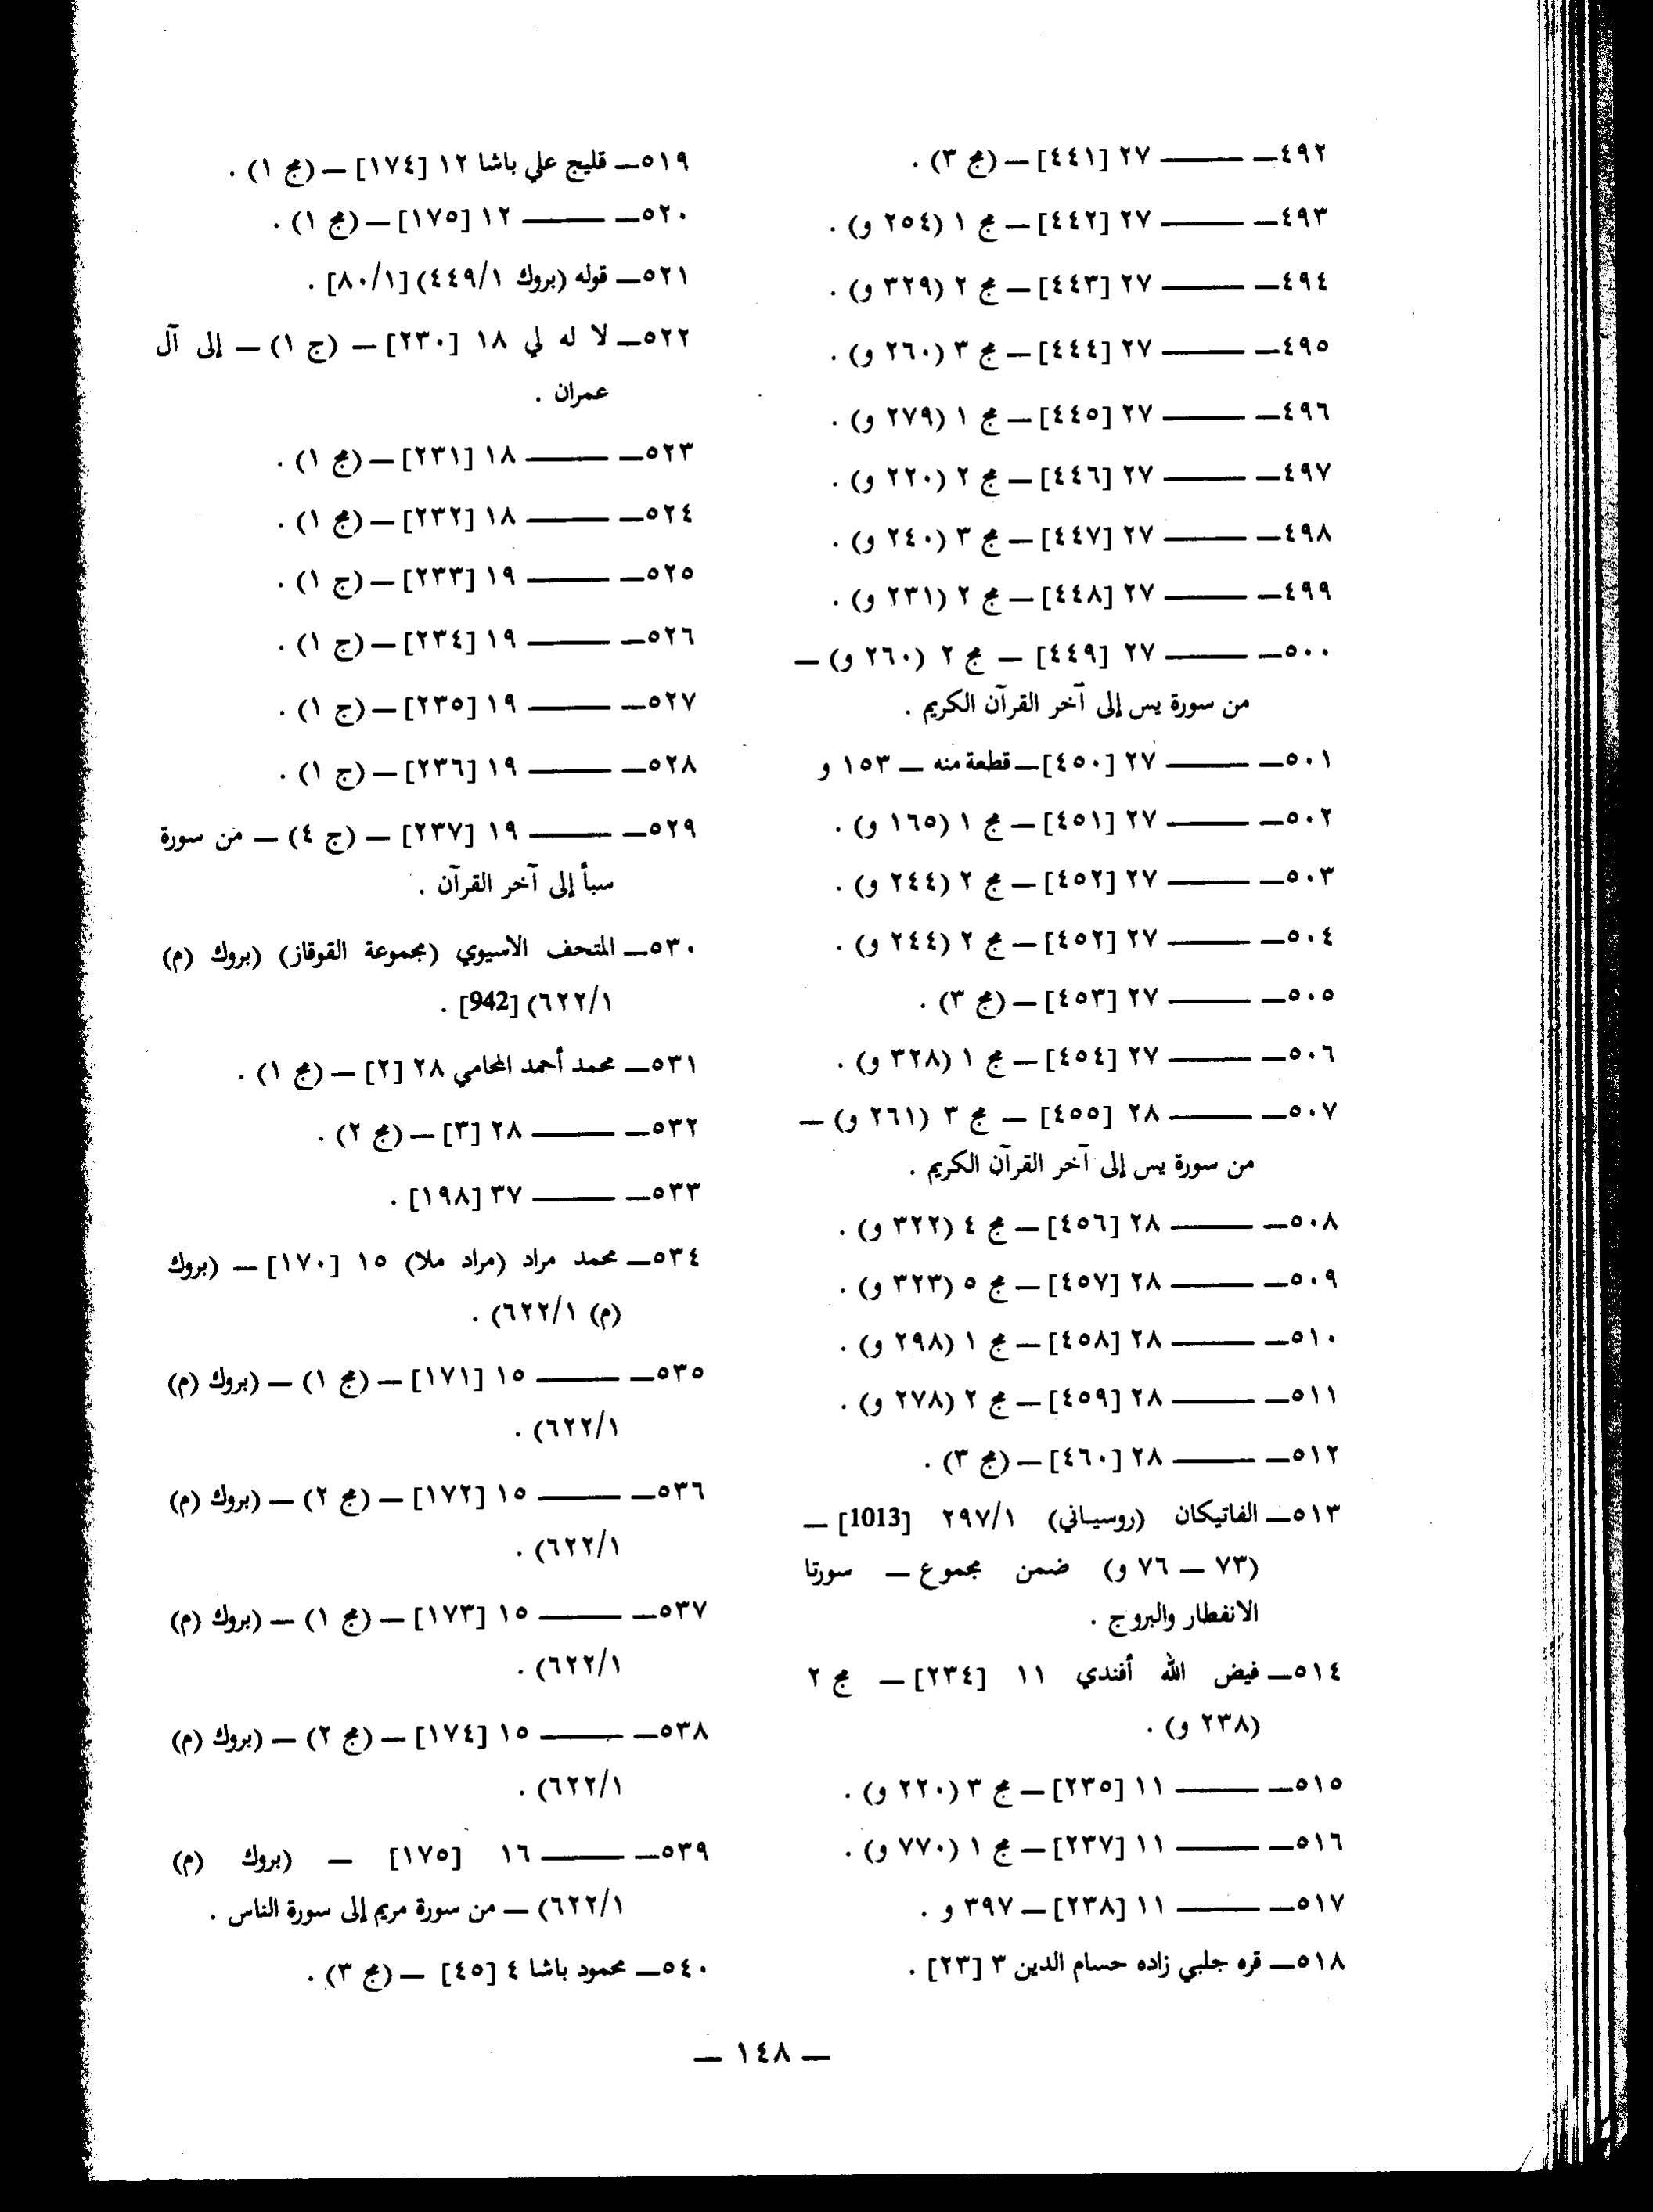 ٤٩٢ــ ــــــ ٢٧ [٤٤١] ــ (مج ٣) .
٤٩٣ــ ــــــ ٢٧ [٤٤٢] ــ مج ١ (٢٥٤ و) .
٤٩٤ــ ــــــ ٢٧ [٤٤٣] ــ مج ٢ (٣٢٩ و) .
٤٩٥ــ ــــــ ٢٧ [٤٤٤] ــ مج ٣ (٢٦٠ و) .
٤٩٦ــ ــــــ ٢٧ [٤٤٥] ــ مج ١ (٢٧٩ و) .
٤٩٧ــ ــــــ ٢٧ [٤٤٦] ــ مج ٢ (٢٢٠ و) .
٤٩٨ــ ــــــ ٢٧ [٤٤٧] ــ مج ٣ (٢٤٠ و) .
٤٩٩ــ ــــــ ٢٧ [٤٤٨] ــ مج ٢ (٢٣١ و) .
٥٠٠ــ ــــــ ٢٧ [٤٤٩] ــ مج ٢ (٢٦٠ و) ــ
من سورة يس إلى آخر القرآن الكريم .
٥٠١ــ ــــــ ٢٧ [٤٥٠] ــ قطعة منه ــ ١٥٣ و
٥٠٢ــ ــــــ ٢٧ [٤٥١] ــ مج ١ (١٦٥ و) .
٥٠٣ــ ــــــ ٢٧ [٤٥٢] ــ مج ٢ (٢٤٤ و) .
٥٠٤ــ ــــــ ٢٧ [٤٥٢] ــ مج ٢ (٢٤٤ و) .
٥٠٥ــ ــــــ ٢٧ [٤٥٣] ــ (مج ٣) .
٥٠٦ــ ــــــ ٢٧ [٤٥٤] ــ مج ١ (٣٢٨ و) .
٥٠٧ــ ــــــ ٢٨ [٤٥٥] ــ مج ٣ (٢٦١ و) ــ
من سورة يس إلى آخر القرآن الكريم .
٥٠٨ــ ــــــ ٢٨ [٤٥٦] ــ مج ٤ (٣٢٢ و) .
٥٠٩ــ ــــــ ٢٨ [٤٥٧] ــ مج ٥ (٣٢٣ و) .
٥١٠ــ ــــــ ٢٨ [٤٥٨] ــ مج ١ (٢٩٨ و) .
٥١١ــ ــــــ ٢٨ [٤٥٩] ــ مج ٢ (٢٧٨ و) .
٥١٢ــ ــــــ ٢٨ [٤٦٠] ــ (مج ٣) .
٥١٣ــ الفاتيكان (روسياني) ٢٩٧/١ [1013] ــ
(٧٣ ــ ٧٦ و) ضمن مجموع ــ سورتا
الانفطار والبروج .
٥١٤ــ فيض الله أفندي ١١ [٢٣٤] ــ مج ٢
(٢٣٨ و) .
٥١٥ــ ــــــ ١١ [٢٣٥] ــ مج ٣ (٢٢٠ و) .
٥١٦ــ ــــــ ١١ [٢٣٧] ــ مج ١ (٧٧٠ و) .
٥١٧ــ ــــــ ١١ [٢٣٨] ــ ٣٩٧ و .
٥١٨ــ قره جلبي زاده حسام الدين ٣ [٢٣] .
٥١٩ــ قليج علي باشا ١٢ [١٧٤] ــ (مج ١) .
٥٢٠ــ ــــــ ١٢ [١٧٥] ــ (مج ١) .
٥٢١ــ قوله (بروك ٤٤٩/١) [٨٠/١] .
٥٢٢ــ لا له لي ١٨ [٢٣٠] ــ (ج ١) ــ إلى آل
عمران .
٥٢٣ــ ــــــ ١٨ [٢٣١] ــ (مج ١) .
٥٢٤ــ ــــــ ١٨ [٢٣٢] ــ (مج ١) .
٥٢٥ــ ــــــ ١٩ [٢٣٣] ــ (ج ١) .
٥٢٦ــ ــــــ ١٩ [٢٣٤] ــ (ج ١) .
٥٢٧ــ ــــــ ١٩ [٢٣٥] ــ (ج ١) .
٥٢٨ــ ــــــ ١٩ [٢٣٦] ــ (ج ١) .
٥٢٩ــ ــــــ ١٩ [٢٣٧] ــ (ج ٤) ــ من سورة
سبأ إلى آخر القرآن .
٥٣٠ــ المتحف الاسيوي (مجموعة القوقاز) (بروك (م)
٦٢٢/١) [942] .
٥٣١ــ محمد أحمد المحامي ٢٨ [٢] ــ (مج ١) .
٥٣٢ــ ــــــ ٢٨ [٣] ــ (مج ٢) .
٥٣٣ــ ــــــ ٣٧ [١٩٨] .
٥٣٤ــ محمد مراد (مراد ملا) ١٥ [١٧٠] ــ (بروك
(م) ٦٢٢/١) .
٥٣٥ــ ــــــ ١٥ [١٧١] ــ (مج ١) ــ (بروك (م)
٦٢٢/١) .
٥٣٦ــ ــــــ ١٥ [١٧٢] ــ (مج ٢) ــ (بروك (م)
٦٢٢/١) .
٥٣٧ــ ــــــ ١٥ [١٧٣] ــ (مج ١) ــ (بروك (م)
٦٢٢/١) .
٥٣٨ــ ــــــ ١٥ [١٧٤] ــ (مج ٢) ــ (بروك (م)
٦٢٢/١) .
٥٣٩ــ ــــــ ١٦ [١٧٥] ــ (بروك (م)
٦٢٢/١) ــ من سورة مريم إلى سورة الناس .
٥٤٠ــ محمود باشا ٤ [٤٥] ــ (مج ٣) .
ــ ١٤٨ ــ